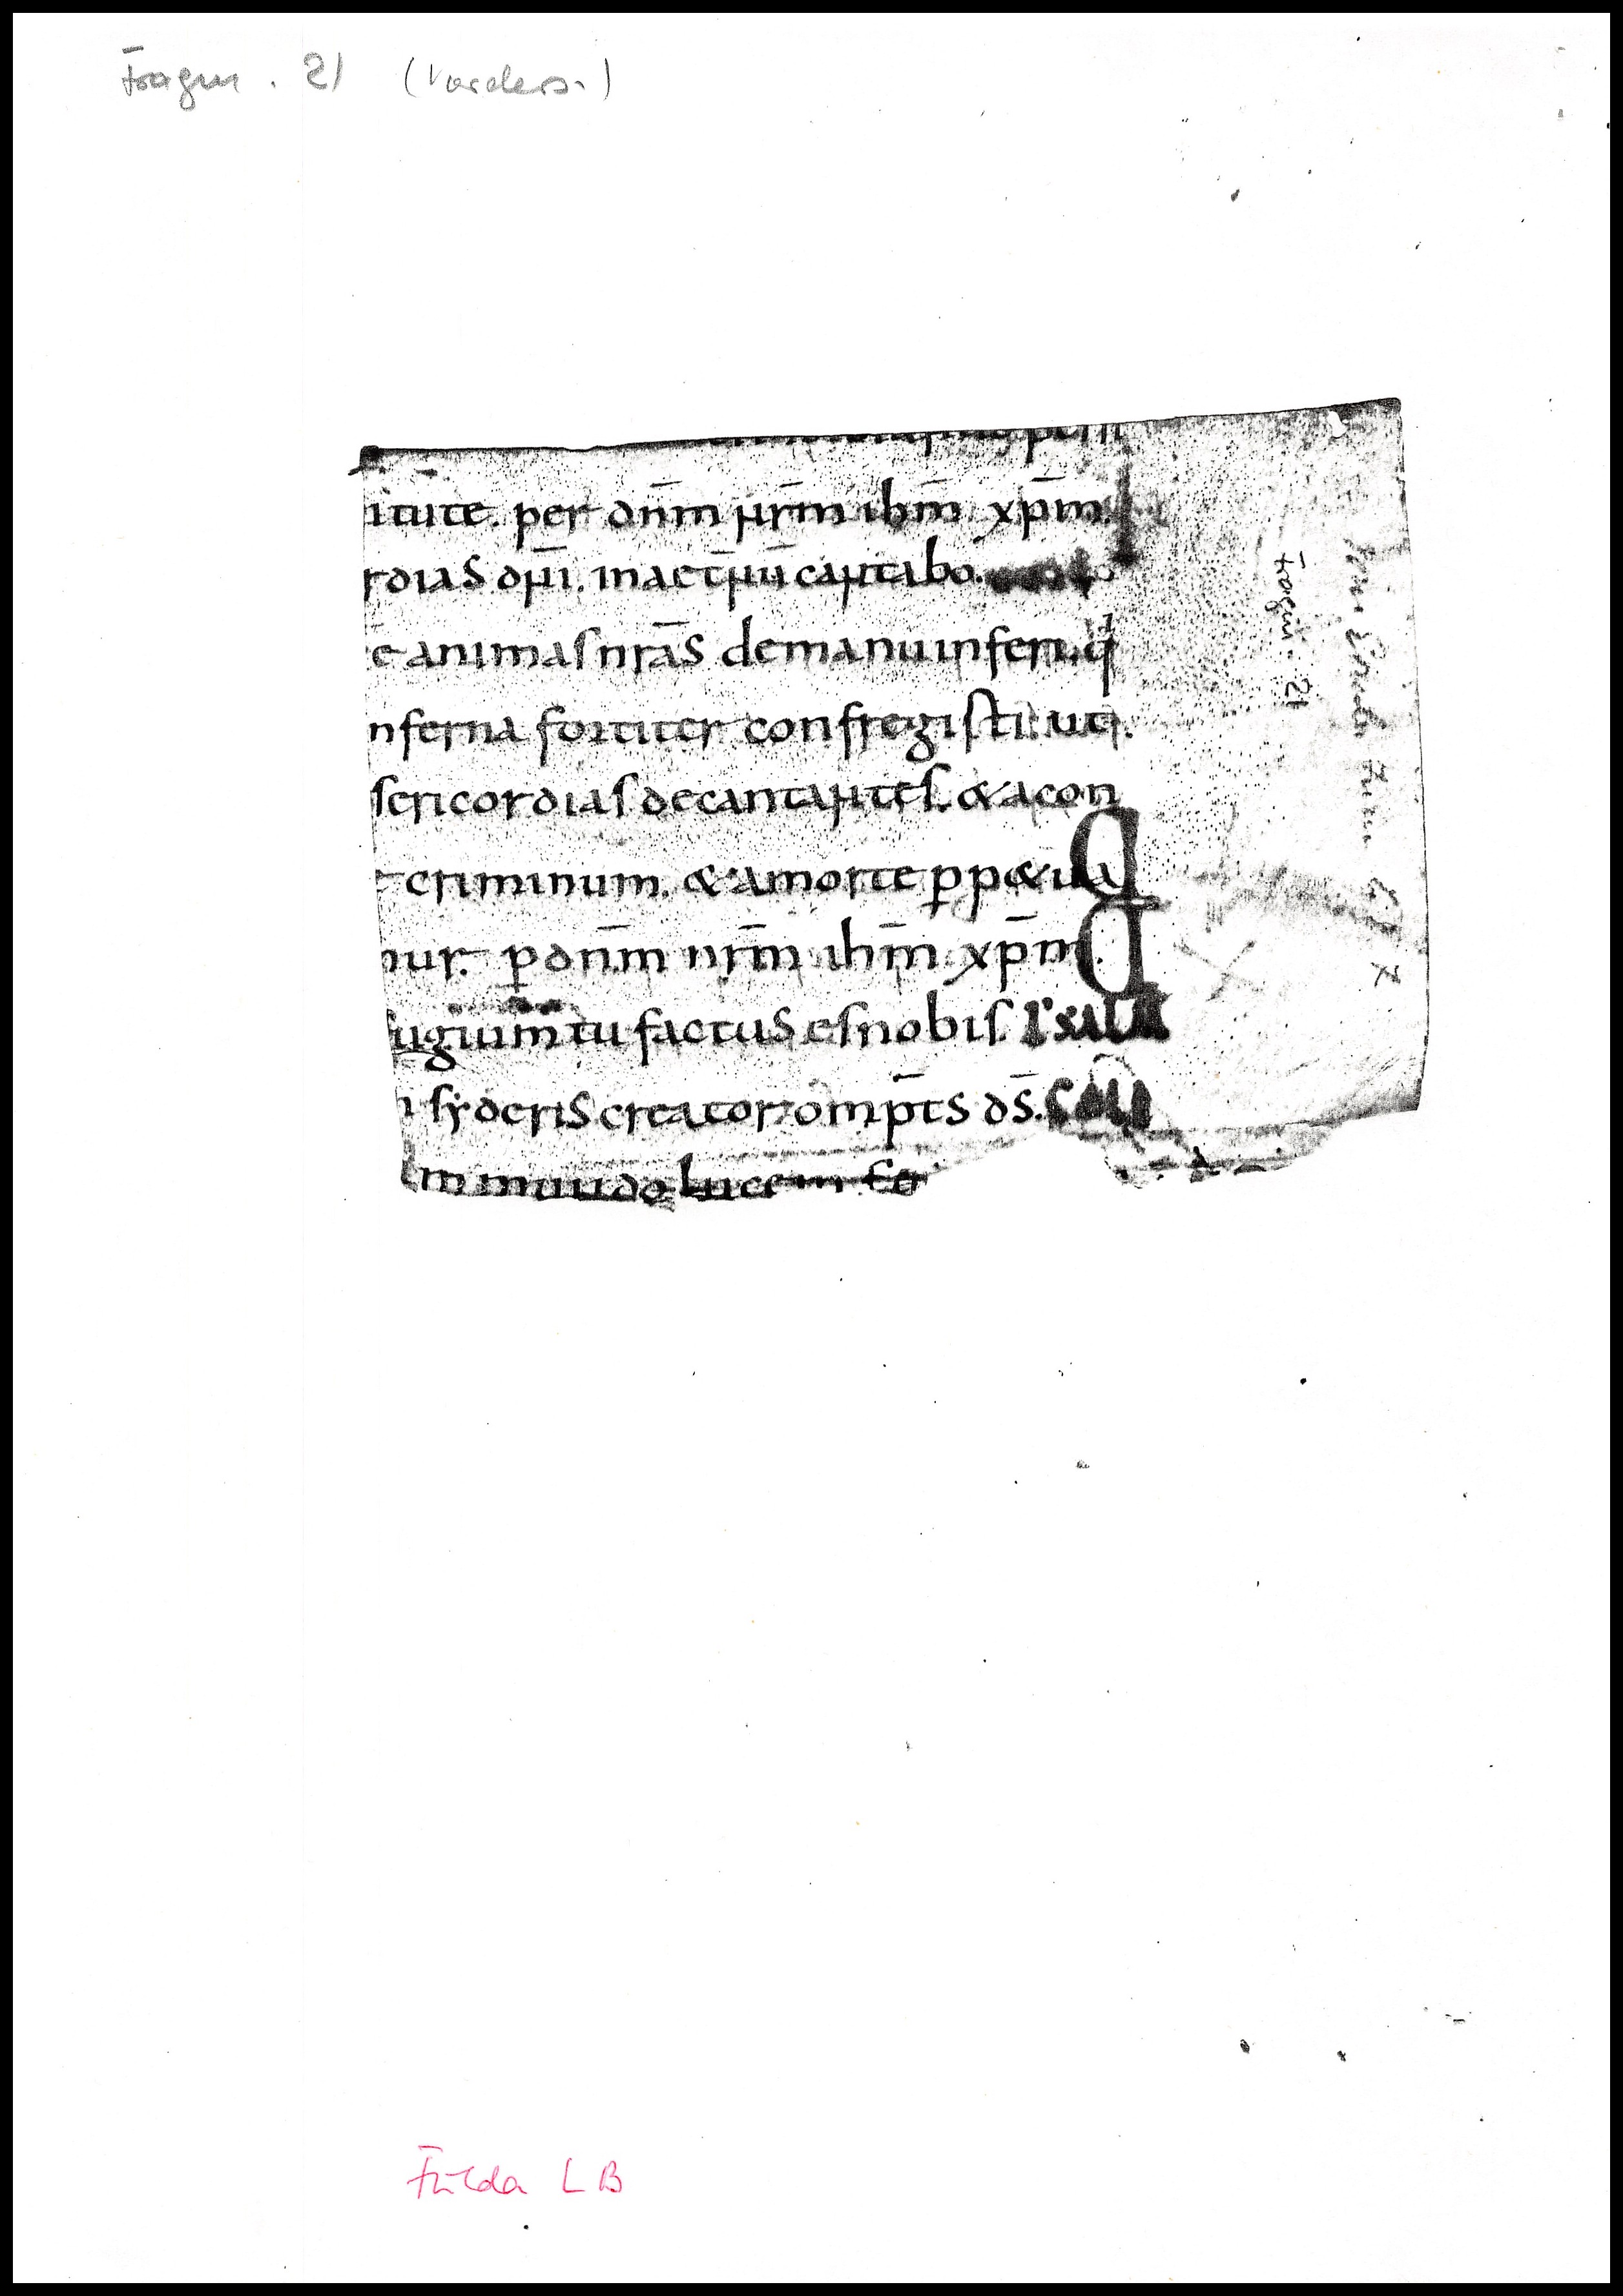 Fragm. 21 (Vorders.)
itute. per dn̄m nr̄m ihm̄ xp̄m.
rdias dn̄i. in aet̄nū cantabo.
e animas nr̄as de manu inferi. q
nferna fortiter confregisti. ut
sericordias decantantes. & a con
criminum. & a morte perp&ua
mur. ꝑ dn̄m nr̄m ihm̄ xp̄m.
ugium tu factus es nobis.
syderis creator omp̄ts ds̄.
m mundo lucem
Fragm. 21
Fulda LB